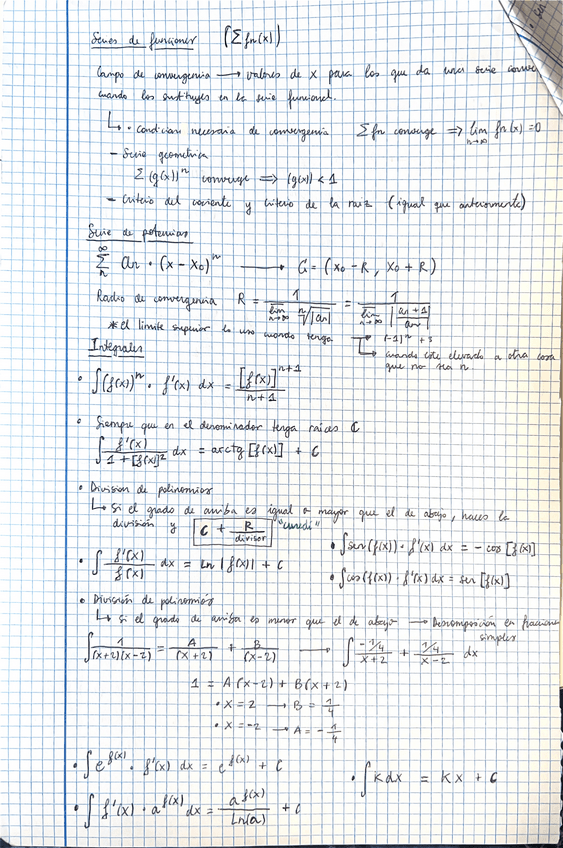 Series de funciones (Σ fn(x))
Campo de convergencia → valores de x para los que da una serie conver
cuando los sustituyes en la serie funcional.
↳ • Condición necesaria de convergencia Σ fn converge => lim n→∞ fn(x) = 0
- Serie geométrica
Σ (g(x))^n converge => |g(x)| < 1
- Criterio del cociente y criterio de la raiz (igual que anteriormente)
Serie de potencias
Σ_n^∞ an · (x - x0)^n → C = (x0 - R, x0 + R)
Radio de convergencia R = 1 / (lim n→∞ ⁿ√|an|) = 1 / (lim n→∞ |an+1 / an|)
* el limite superior lo uso cuando tenga → (-1)^n + 3
↳ cuando este elevado a otra cosa
que no sea n.
Integrales
• ∫ (f(x))^n · f'(x) dx = [f(x)]^(n+1) / (n+1)
• Siempre que en el denominador tenga raíces C
∫ f'(x) / (1 + [f(x)]²) dx = arctg [f(x)] + C
• División de polinomios
↳ Si el grado de arriba es igual o mayor que el de abajo, haces la
división y C + R/divisor
• ∫ sen(f(x)) · f'(x) dx = - cos [f(x)]
• ∫ f'(x)/f(x) dx = Ln |f(x)| + C
• ∫ cos(f(x)) · f'(x) dx = sen [f(x)]
• División de polinomios
↳ si el grado de arriba es menor que el de abajo → Descomposición en fracciones
simples
∫ 1/((x+2)(x-2)) = A/(x+2) + B/(x-2) → ∫ (-1/4)/(x+2) + (1/4)/(x-2) dx
1 = A(x-2) + B(x+2)
• x = 2 → B = 1/4
• x = -2 → A = - 1/4
• ∫ e^f(x) · f'(x) dx = e^f(x) + C
• ∫ K dx = Kx + C
• ∫ f'(x) · a^f(x) dx = a^f(x) / Ln(a) + C